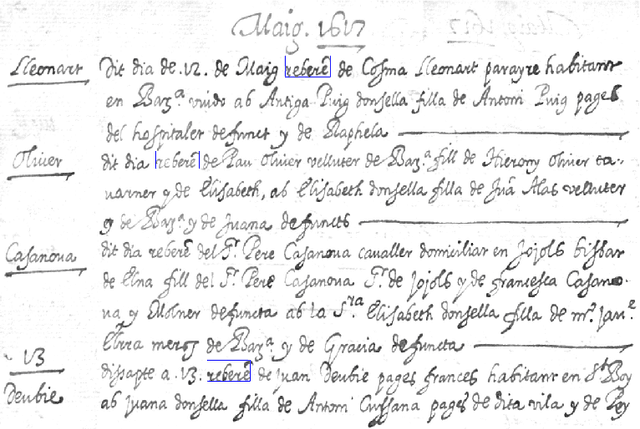 Maig. 1617
Lleonart Dit dia de .12. de Maig reberē de Cosma Lleonart parayre habitant
en Barᵃ viudo ab Antiga Puig donsella filla de Antoni Puig pages
del hospitalet defunct y de Raphela
Oliver dit dia reberē de Pau Oliver velluter de Barᵃ fill de Hierony Oliver ta-
varner y de Elisabeth, ab Elisabeth donsella filla de Juā Alas velluter
de Barᵃ y de Juana defuncts
Casanova dit dia reberē del Sʳ. Pere Casanova cavaller domiciliat en Jojols bisbat
de Elna fill del Sʳ. Pere Casanova Sʳ. de Jojols y de francesca Casano-
va y Molner defuncta ab la Sʳᵃ Elisabeth donsella filla de mʳ. Jauᵉ
merᵉ de Barᵃ. y de Gracia defuncta
13 dissapte a .13. reberē de Juan Deubie pages frances habitant en Sᵗ Boy
Deubie ab Juana donsella filla de Antoni Cussana pages de dita vila y de